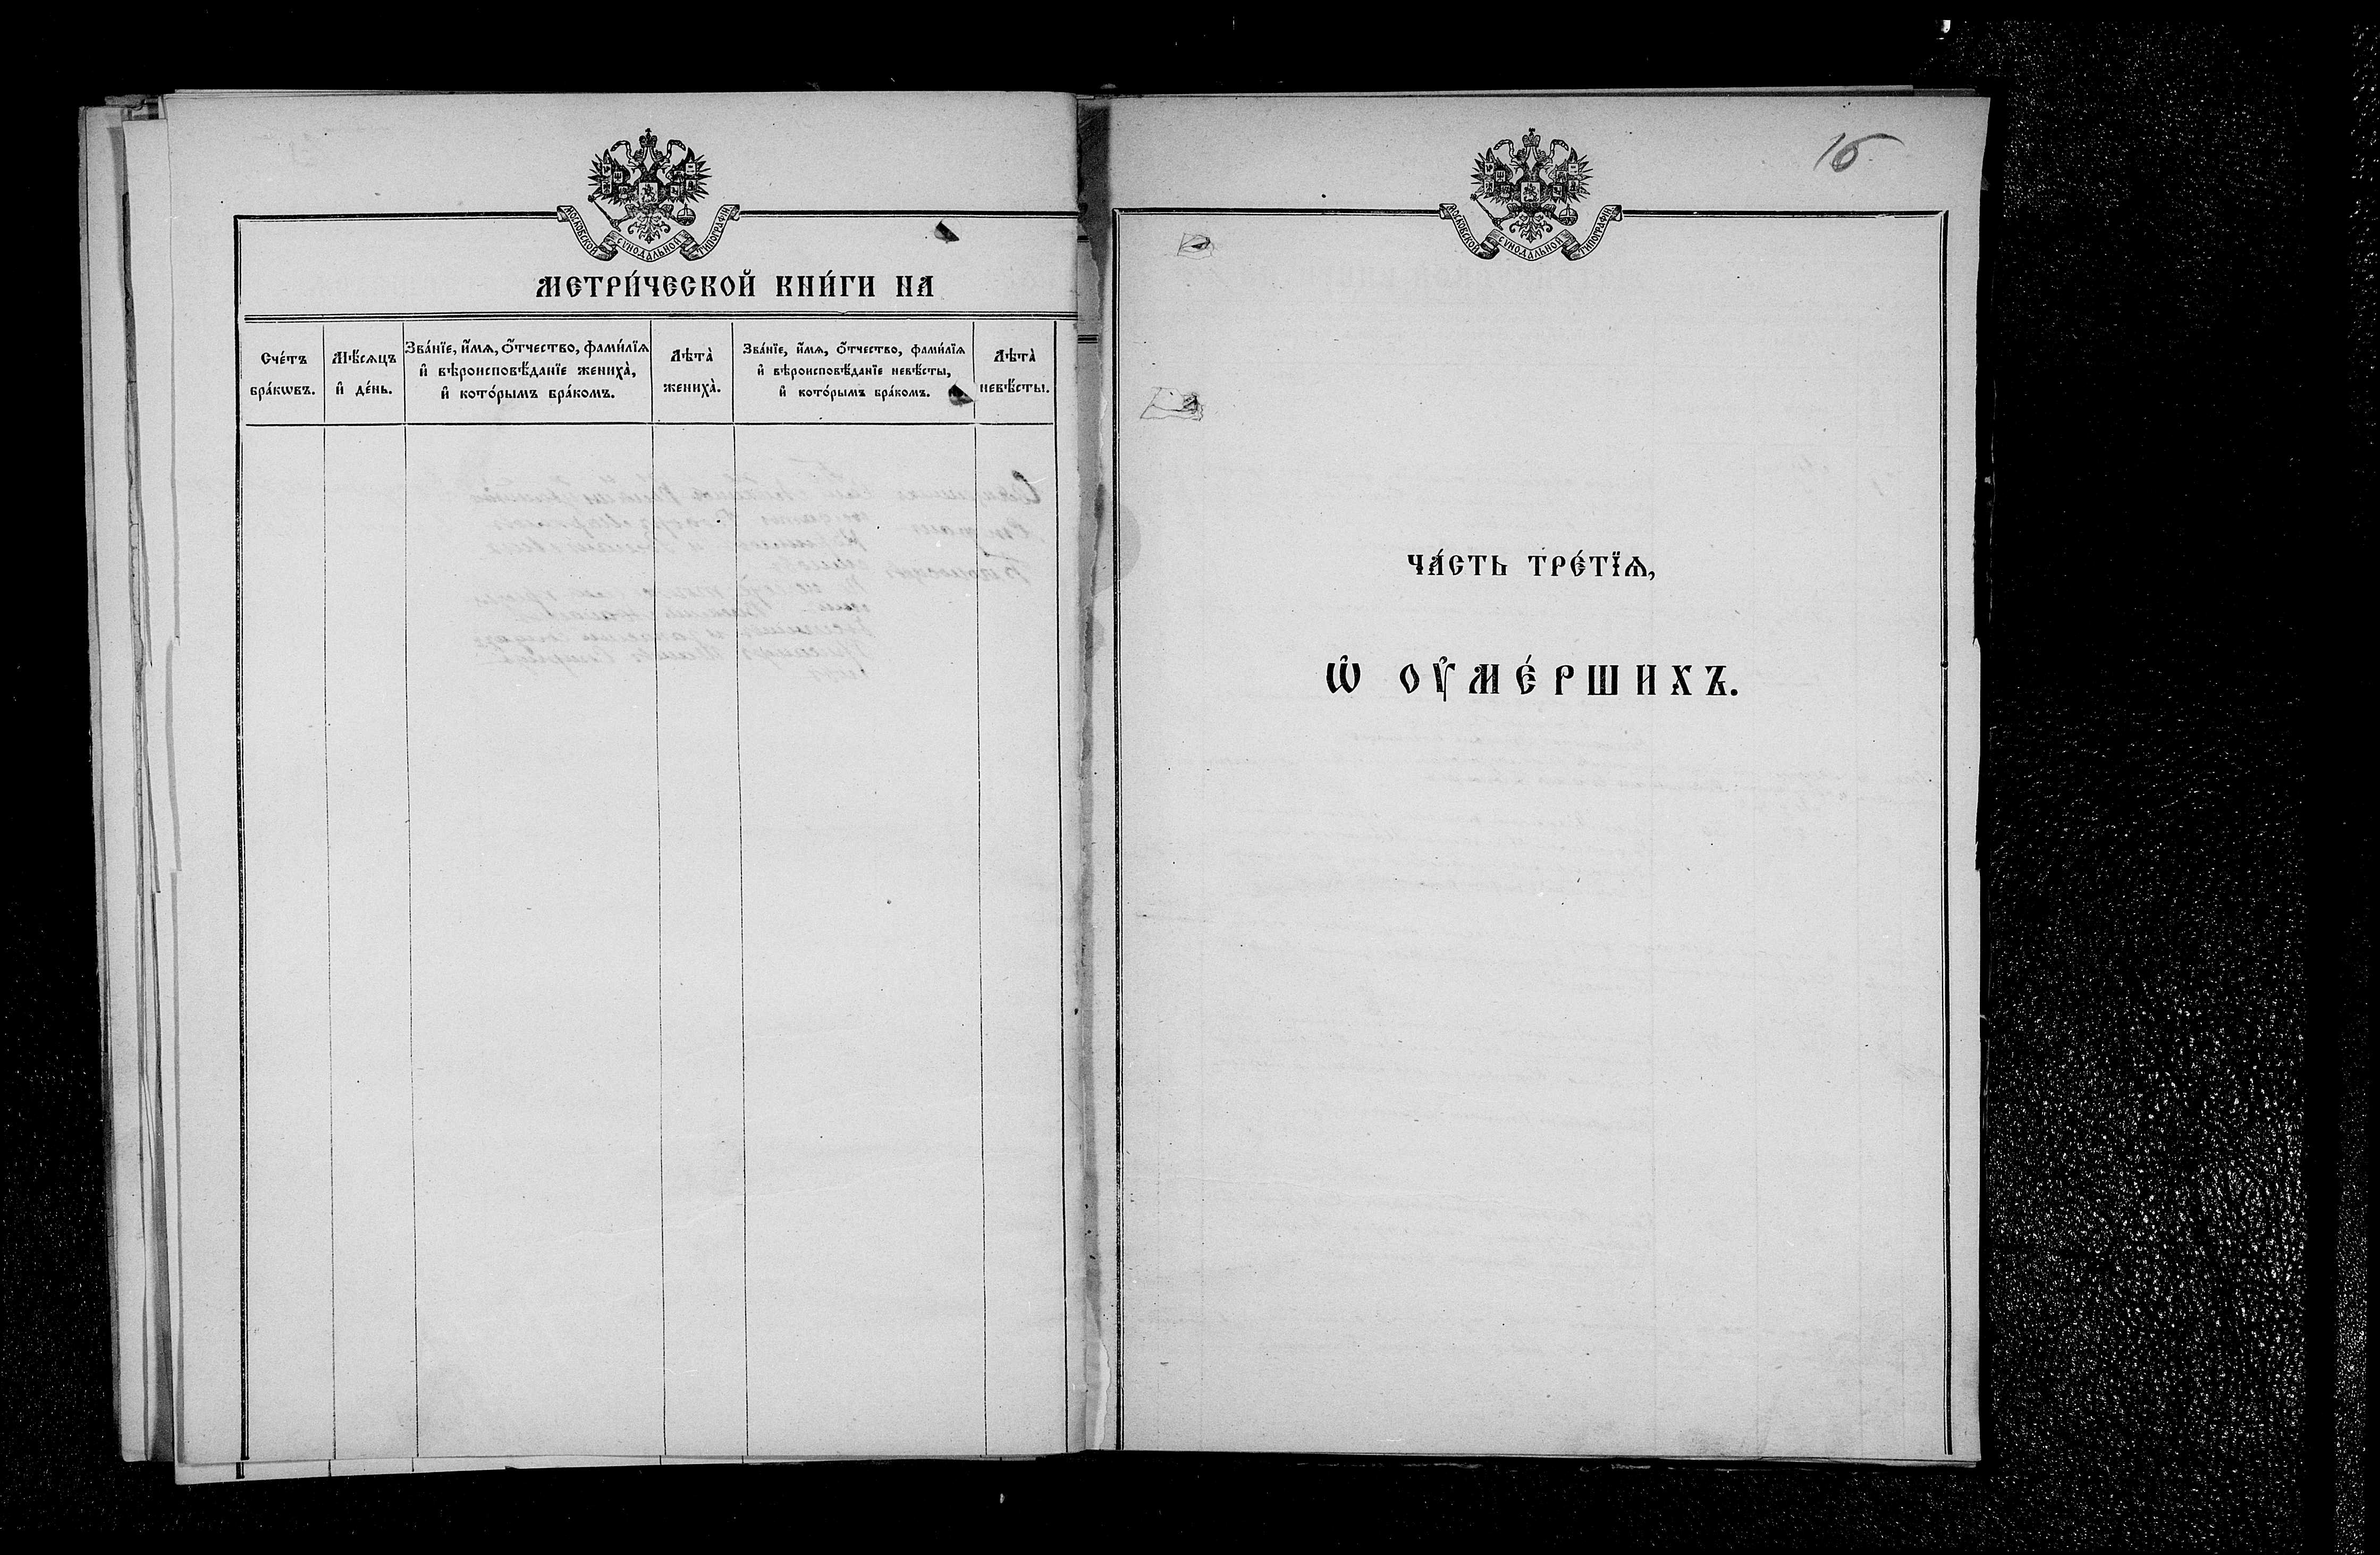 МОСКОВСКОЙ СѴНОДАЛЬНОЙ ТИПОГРАФІИ.
МЕТРИ́ЧЕСКОЙ КНИ́ГИ НА
Сче́тъ бра́кѡвъ.
Мѣ́сѧцъ и҆ де́нь.
Зва́нїе, и҆́мѧ, ѻ҆́тчество, фами́лїѧ
и҆ вѣроисповѣ́данїе жениха̀,
и҆ кото́рымъ бра́комъ.
Лѣта̀
жениха̀.
Зва́нїе, и҆́мѧ, ѻ҆́тчество, фами́лїѧ
и҆ вѣроисповѣ́данїе невѣ́сты,
и҆ кото́рымъ бра́комъ.
Лѣта̀
невѣ́сты.
16
МОСКОВСКОЙ СѴНОДАЛЬНОЙ ТИПОГРАФІИ.
ЧА́СТЬ ТРЕ́ТЇѦ,
Ѡ҆ ОУ҆МЕ́РШИХЪ.